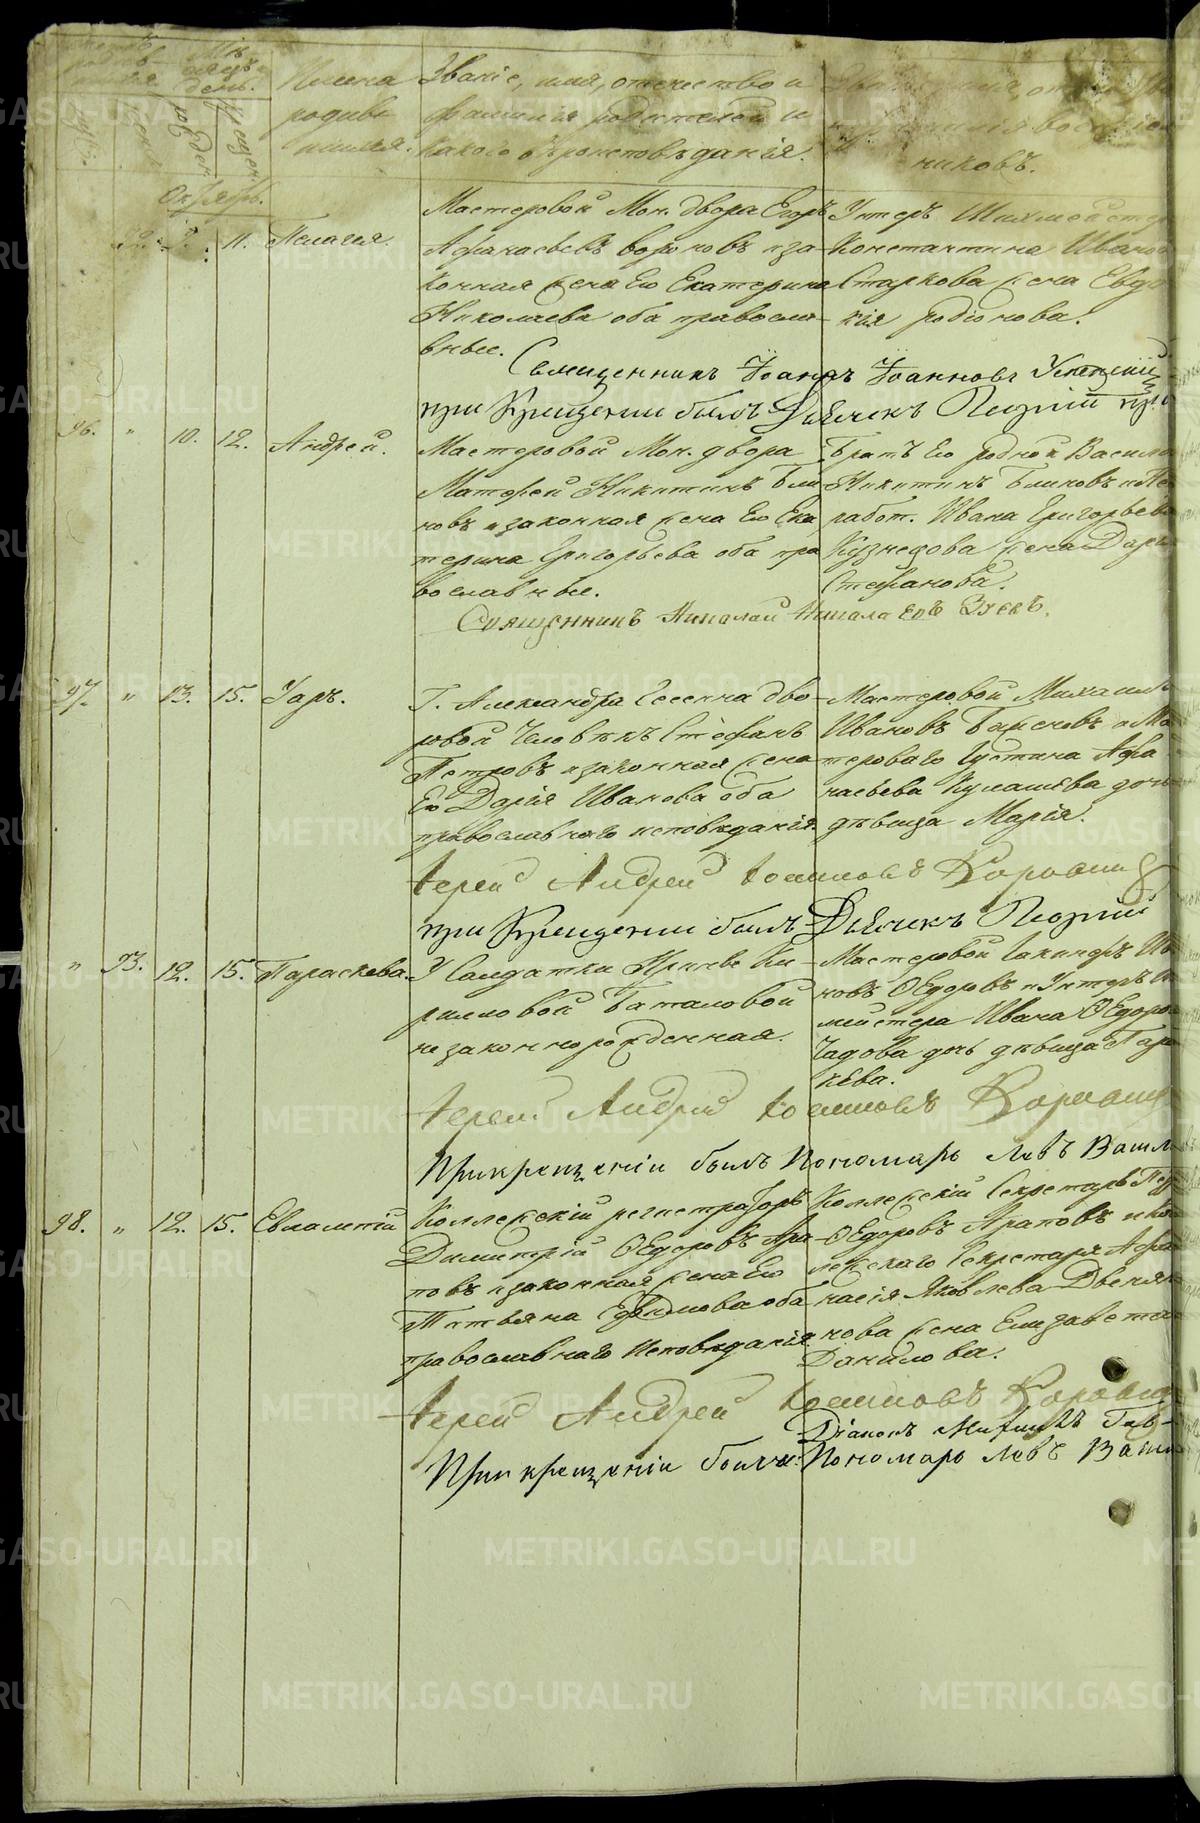 Имена родив шихся.
Званіе, имя, отчество и фамилія родителей и какого вѣроисповѣданія.
никовъ.
Октябрь.
11. Пелагея.
Мастеровой Мон. двора Егоръ
Афанасьевъ Вороновъ и за-
конная жена его Екатерина
Николаева оба православ-
вные.
Унтеръ Шихмейстера
Константина Иванова
Старкова жена Евдо-
кія Родіонова.
Священникъ Іоаннъ Іоанновъ Успенскій
при Крещеніи былъ Дьячекъ Георгій
96. " 10. 12. Андрей.
Мастеровой Мон. двора
Матфей Никитинъ Бли
новъ и законная жена его Ека
терина Григорьева оба пра
вославные.
Братъ его родной Василій
Никитинъ Блиновъ и
работ. Ивана Григорьева
Кузнецова жена Дарья
Стефанова.
Священникъ Николай Николаевъ Зуевъ.
97. " 13. 15. Уаръ.
Г. Александра дво-
ровой Человѣкъ Стефанъ
Петровъ и законная жена
его Дарія Иванова оба
православнаго исповѣданія.
Мастеровой Михаилъ
Ивановъ Баженовъ и Мас
тероваго Іустина Афа
насьева Кулашева дочь
дѣвица Марія.
Іерей Андрей Іоакимовъ
при Крещеніи былъ Дьячекъ Георгій
" 93. 12. 15. Параскева.
У Салдатки Ки-
рилловой Баталовой
незаконнорожденная.
Мастеровой Іакинфъ Ива
новъ Ѳедоровъ и Унтеръ Ших
мейстера Ивана Ѳедорова
Чадова дочь дѣвица Парас
кева.
Іерей Андрей Іоакимовъ
При крещеніи былъ Пономарь Левъ
98. " 12. 15. Евлампій
Коллежскій регистраторъ
Димитрій Ѳедоровъ Ара-
повъ и законная жена его
Татьяна Евдокимова оба
православнаго Исповѣданія.
Коллежскій Секретарь
Ѳедоровъ Араповъ и Кол
лежскаго Секретаря Афа
насія Яковлева
нова жена Елизавета
Данилова.
Іерей Андрей Іоакимовъ
Діаконъ
При крещеніи были: Пономарь Левъ
METRIKI.GASO-URAL.RU